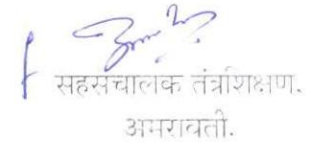 सहसंचालक तंत्रशिक्षण.
अमरावती.